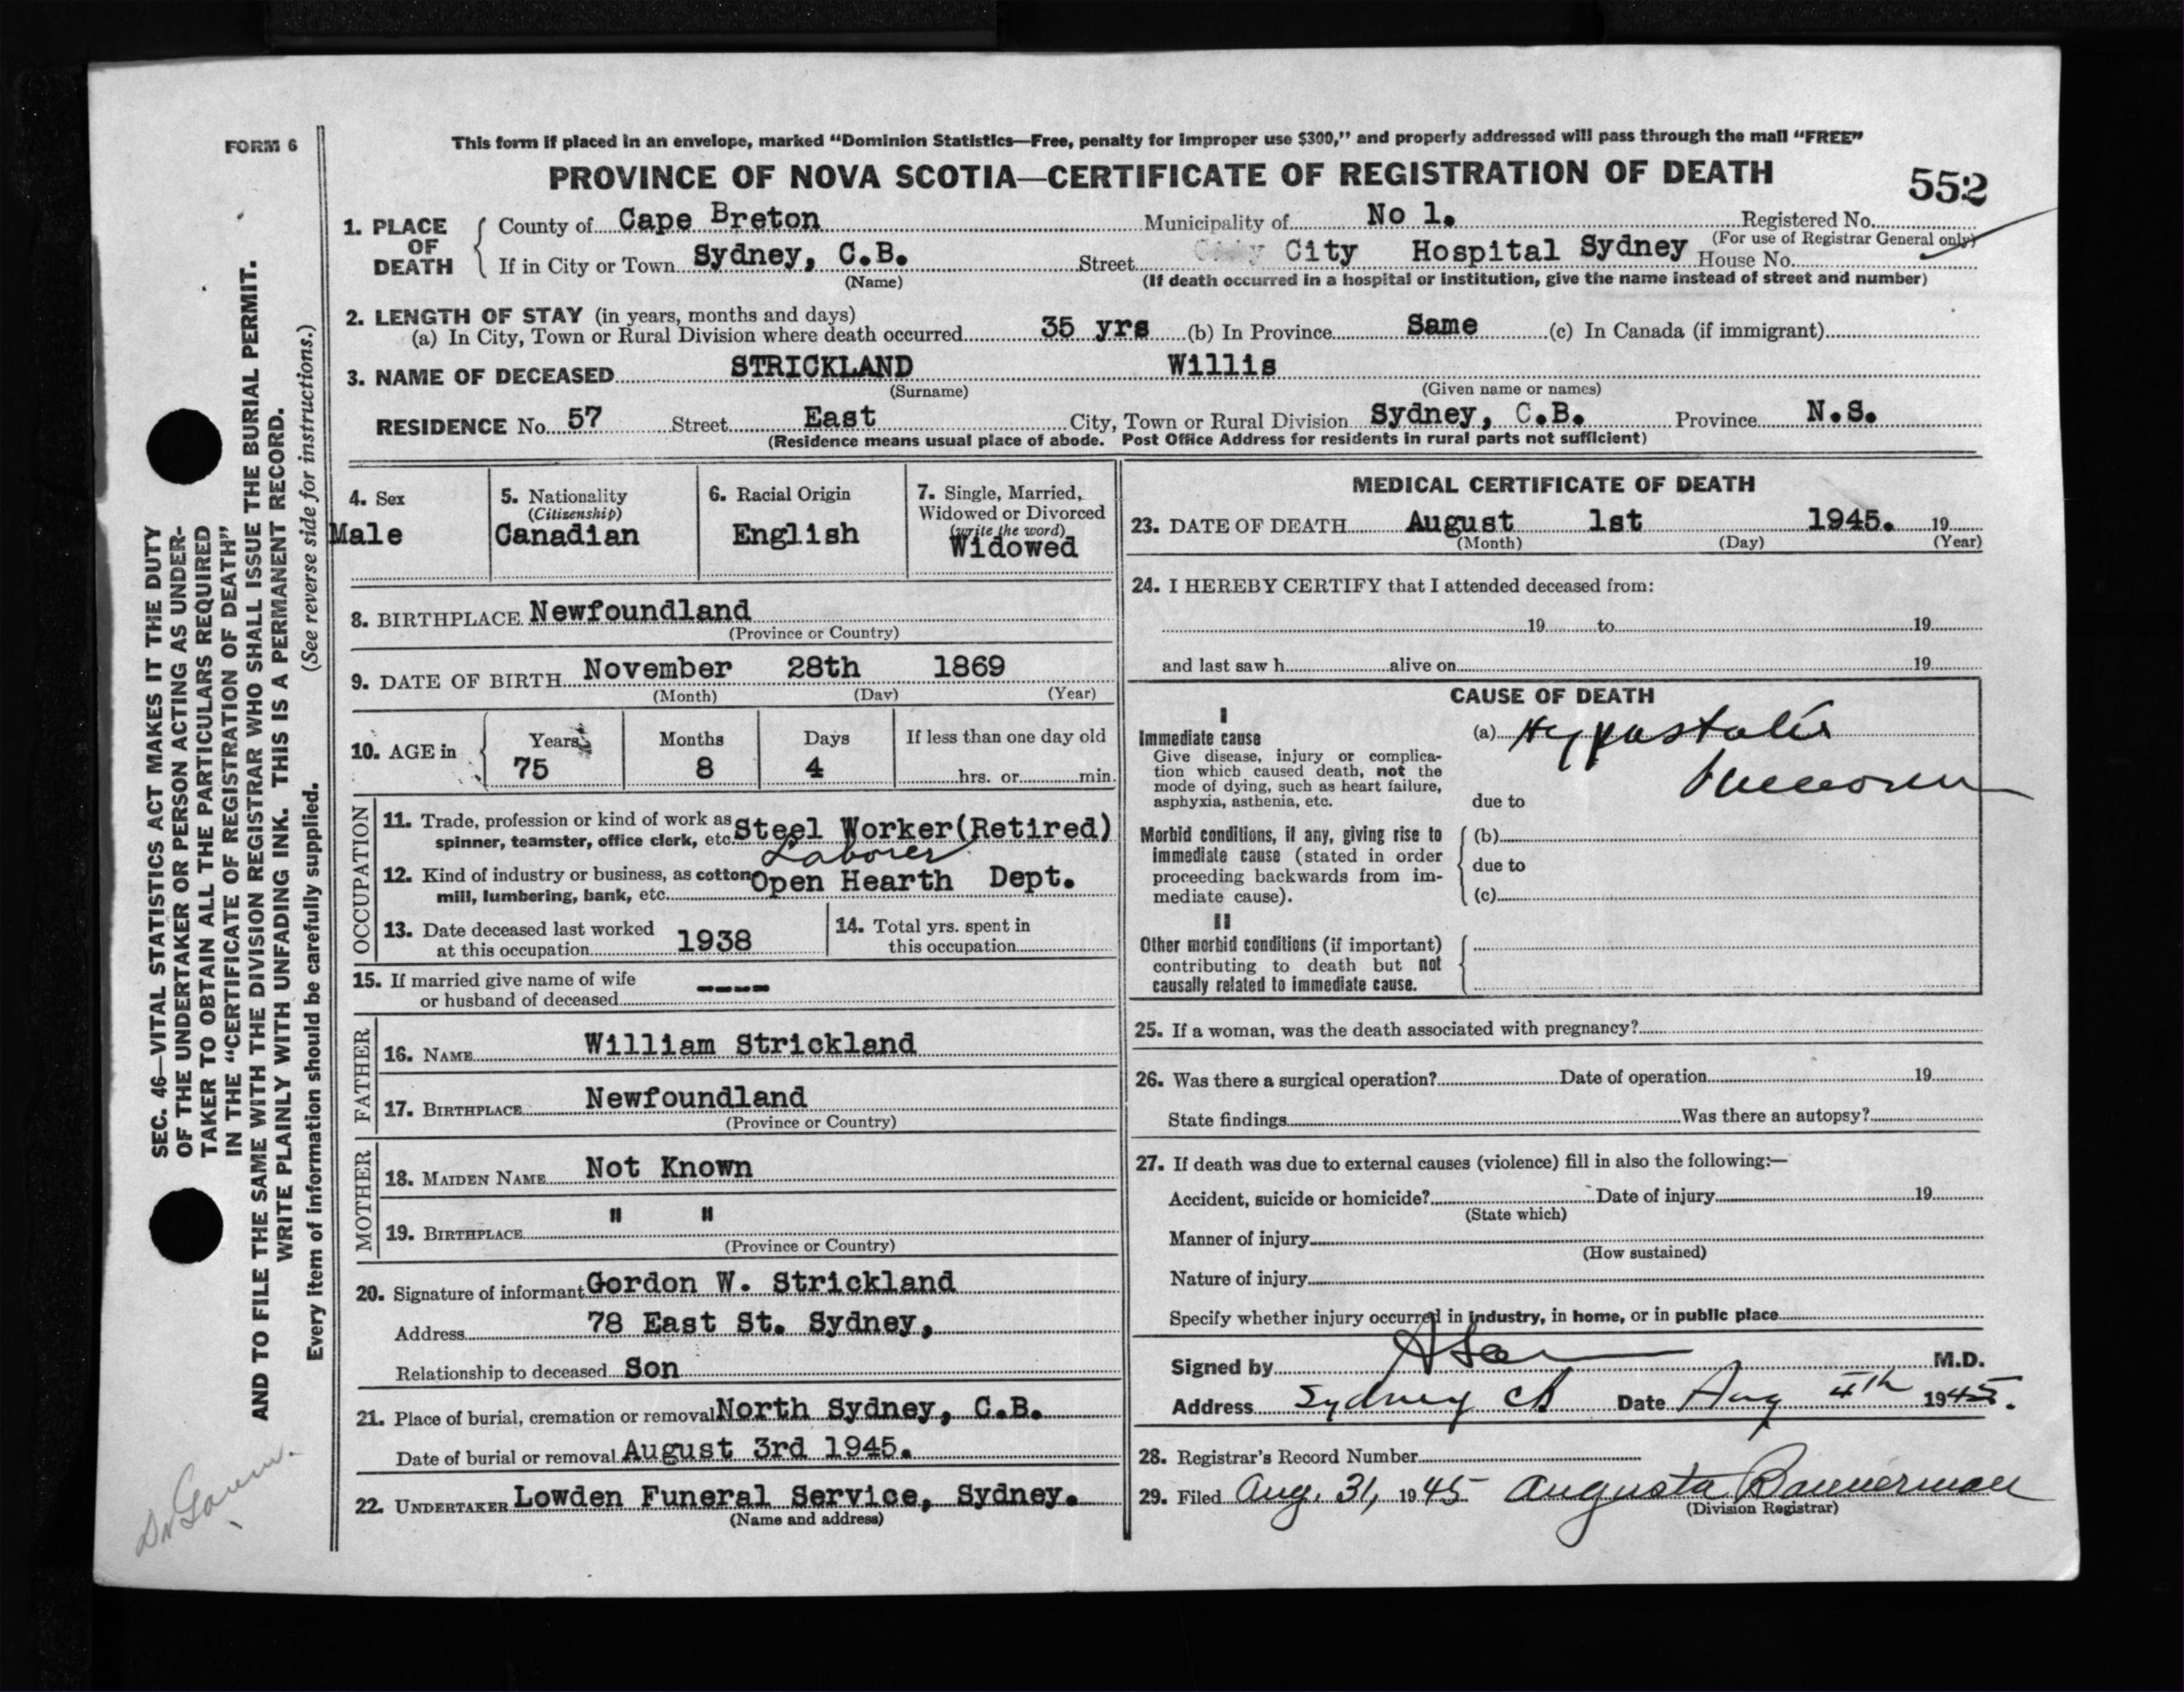 FORM 6
This form if placed in an envelope, marked "Dominion Statistics—Free, penalty for improper use $300," and properly addressed will pass through the mail "FREE"
PROVINCE OF NOVA SCOTIA—CERTIFICATE OF REGISTRATION OF DEATH
552
1. PLACE OF DEATH
County of Cape Breton Municipality of No 1. Registered No.
(For use of Registrar General only)
If in City or Town Sydney, C.B. Street City Hospital Sydney House No.
(Name) (If death occurred in a hospital or institution, give the name instead of street and number)
2. LENGTH OF STAY (in years, months and days)
(a) In City, Town or Rural Division where death occurred 35 yrs (b) In Province Same (c) In Canada (if immigrant)
3. NAME OF DECEASED STRICKLAND Willis
(Surname) (Given name or names)
RESIDENCE No. 57 Street East City, Town or Rural Division Sydney, C.B. Province N.S.
(Residence means usual place of abode. Post Office Address for residents in rural parts not sufficient)
4. Sex
Male
5. Nationality
(Citizenship)
Canadian
6. Racial Origin
English
7. Single, Married,
Widowed or Divorced
(write the word)
Widowed
8. BIRTHPLACE Newfoundland
(Province or Country)
9. DATE OF BIRTH November 28th 1869
(Month) (Day) (Year)
10. AGE in
Years Months Days If less than one day old
75 8 4 hrs. or min.
OCCUPATION
11. Trade, profession or kind of work as
spinner, teamster, office clerk, etc. Steel Worker(Retired)
Laborer
12. Kind of industry or business, as cotton
mill, lumbering, bank, etc. Open Hearth Dept.
13. Date deceased last worked
at this occupation 1938
14. Total yrs. spent in
this occupation
15. If married give name of wife
or husband of deceased ----
FATHER
16. NAME William Strickland
17. BIRTHPLACE Newfoundland
(Province or Country)
MOTHER
18. MAIDEN NAME Not Known
19. BIRTHPLACE " "
(Province or Country)
20. Signature of informant Gordon W. Strickland
Address 78 East St. Sydney,
Relationship to deceased Son
21. Place of burial, cremation or removal North Sydney, C.B.
Date of burial or removal August 3rd 1945.
22. UNDERTAKER Lowden Funeral Service, Sydney.
(Name and address)
MEDICAL CERTIFICATE OF DEATH
23. DATE OF DEATH August 1st 1945. 19
(Month) (Day) (Year)
24. I HEREBY CERTIFY that I attended deceased from:
19 to 19
and last saw h alive on 19
CAUSE OF DEATH
I
Immediate cause
Give disease, injury or complica-
tion which caused death, not the
mode of dying, such as heart failure,
asphyxia, asthenia, etc.
(a) Hypostatic
due to
Morbid conditions, if any, giving rise to
immediate cause (stated in order
proceeding backwards from im-
mediate cause).
(b)
due to
(c)
II
Other morbid conditions (if important)
contributing to death but not
causally related to immediate cause.
25. If a woman, was the death associated with pregnancy?
26. Was there a surgical operation? Date of operation 19
State findings Was there an autopsy?
27. If death was due to external causes (violence) fill in also the following:—
Accident, suicide or homicide? Date of injury 19
(State which)
Manner of injury
(How sustained)
Nature of injury
Specify whether injury occurred in industry, in home, or in public place
Signed by M.D.
Address Sydney CB Date Aug 4th 1945.
28. Registrar's Record Number
29. Filed Aug. 31, 1945 Augusta Bannerman
(Division Registrar)
SEC. 46—VITAL STATISTICS ACT MAKES IT THE DUTY
OF THE UNDERTAKER OR PERSON ACTING AS UNDER-
TAKER TO OBTAIN ALL THE PARTICULARS REQUIRED
IN THE "CERTIFICATE OF REGISTRATION OF DEATH"
AND TO FILE THE SAME WITH THE DIVISION REGISTRAR WHO SHALL ISSUE THE BURIAL PERMIT.
WRITE PLAINLY WITH UNFADING INK. THIS IS A PERMANENT RECORD.
Every item of information should be carefully supplied. (See reverse side for instructions.)